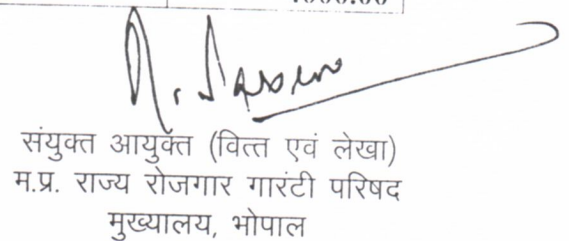 संयुक्त आयुक्त (वित्त एवं लेखा)
म.प्र. राज्य रोजगार गारंटी परिषद
मुख्यालय, भोपाल